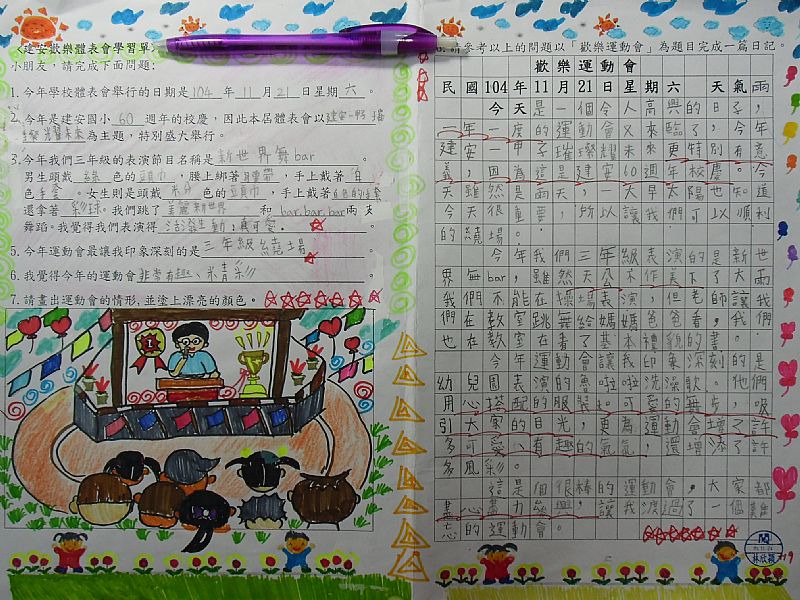 <建安歡樂體表會學習單>
小朋友，請完成下面問題：
1. 今年學校體表會舉行的日期是 104 年 11 月 21 日星期 六 。
2. 今年是建安國小 60 週年的校慶，因此本屆體表會以建安一甲子璀
璨耀未來為主題，特別盛大舉行。
3. 今年我們三年級的表演節目名稱是 新世界舞bar 。
男生頭戴 綠 色的頭巾，腰上綁著，手上戴著白
色手套。女生則是頭戴 米分 色的頭巾，手上戴著白色的手套
還拿著 彩球。我們跳了 美麗新世界 和 bar.bar.bar 兩支
舞蹈。我覺得我們表演得 活潑生動，真可愛。
5. 今年運動會最讓我印象深刻的是 三年級繞場 。
6. 我覺得今年的運動會 非常有趣、米青彩 。
7. 請畫出運動會的情形，並塗上漂亮的顏色。
請參考以上的問題以「歡樂運動會」為題目完成一篇日記。
歡樂運動會
民國104年11月21日星期六 天氣雨
今天是一個令人高興的日子，
一年一度的運動會又來臨了，今年
建安一甲子璀璨耀未來更特別有意
義，因為這是建安60週年校慶。今
天雖然是雨天，一大早太陽也知道
今天很重要，所以讓我們可以順利
的繞場。
今年我們三年級表演的是新世
界舞bar，雖然天公不作美下了大雨
我們不能在操場表演，但老師讓我
們在教室跳舞給媽媽爸爸看，我們
也在教室在看了基本禮貌的書。
今年運動會讓我印象深刻的是
幼兒園表演的魯啦啦洗澡歌。他們
用心搭配的服裝和可愛的舞步，吸
引大家的目光，更為運動會增了許
多可愛、有趣的氣氛，還增添了許
多風彩。
這是個很棒的運動會，大家都
盡心盡力參與，讓我渡過了一個難
忘的運動會。
閱
林欣穎